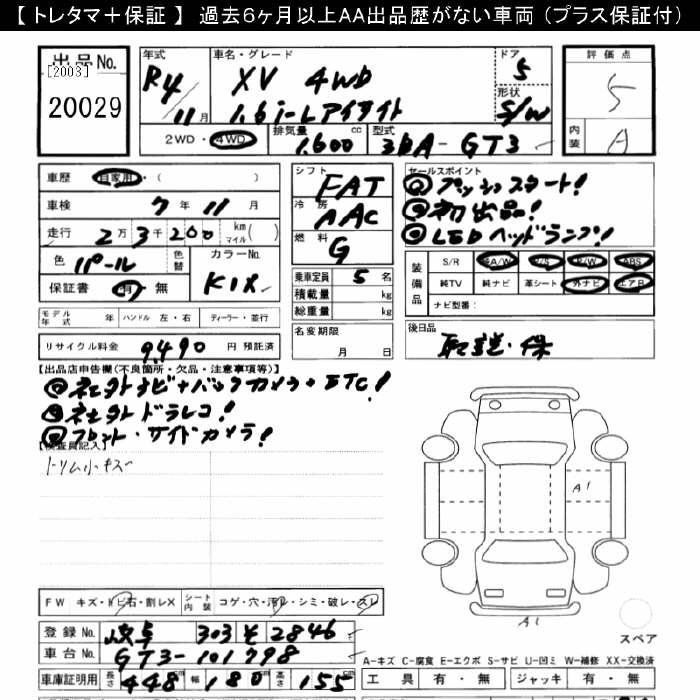 【 トレタマ＋保証 】 過去６ヶ月以上ＡＡ出品歴がない車両（プラス保証付）
出品No.
[2003]
20029
年式 R4 11月
車名・グレード XV 4WD
1.6i-Lアイサイト
ドア 5
形状 S/W
評価点 5
内装 A
2WD・4WD
排気量 1,600 cc
型式 3BA-GT3
車歴 自家用・( )
車検 7年 11月
走行 2万3千200 km マイル( )
色 パール 色替
カラーNo. K1X
保証書 有・無
シフト FAT
冷房 AAC
燃料 G
乗車定員 5名
積載量 kg
総重量 kg
セールスポイント
◎プッシュスタート!
◎初出品!
◎LEDヘッドランプ!
装備品
S/R A/W P/S P/W ABS
純TV 純ナビ 革シート 外ナビ エアB
ナビ型番:
モデル年式 年 ハンドル 左・右 ディーラー・並行
名変期限 月 日
後日品 取説・保
リサイクル料金 9,490 円 預託済
【出品店申告欄(不良箇所・欠品・注意事項等)】
◎社外ナビ+バックカメラ・ETC!
◎社外ドラレコ!
◎フロント・サイドカメラ!
【検査員記入】
トリム小キズ
A1
A1
FW キズ・トビ石・割レX
シート内装 コゲ・穴・汚レ・シミ・破レ・スレ
スペア
登録No. 岐阜 303 そ 2846
車台No. GT3-101798
車庫証明用 長さ 448 幅 180 高さ 155
A-キズ C-腐食 E-エクボ S-サビ U-凹ミ W-補修 XX-交換済
工具 有・無 ジャッキ 有・無